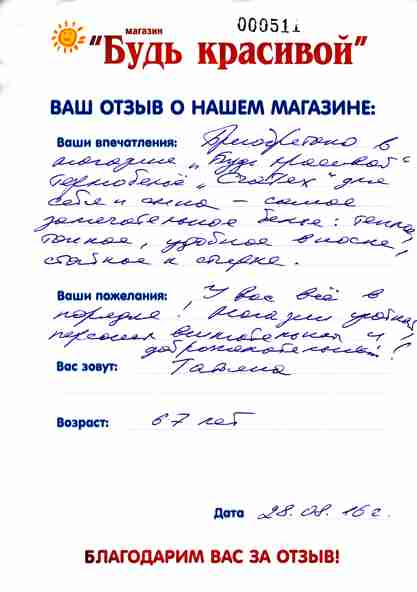 магазин
000511
"Будь красивой"
ВАШ ОТЗЫВ О НАШЕМ МАГАЗИНЕ:
Ваши впечатления: Приобретено в
магазине „Будь красивой“
термобельё „Cratex“ для
себя и сына – самое
замечательное белье: теплое,
тонкое, удобное в носке,
стойкое к стирке.
Ваши пожелания: У вас всё в
порядке! Магазин уютный,
персонал внимательный и
доброжелательный!
Вас зовут: Татьяна
Возраст: 67 лет
Дата 28.08.16 г.
БЛАГОДАРИМ ВАС ЗА ОТЗЫВ!